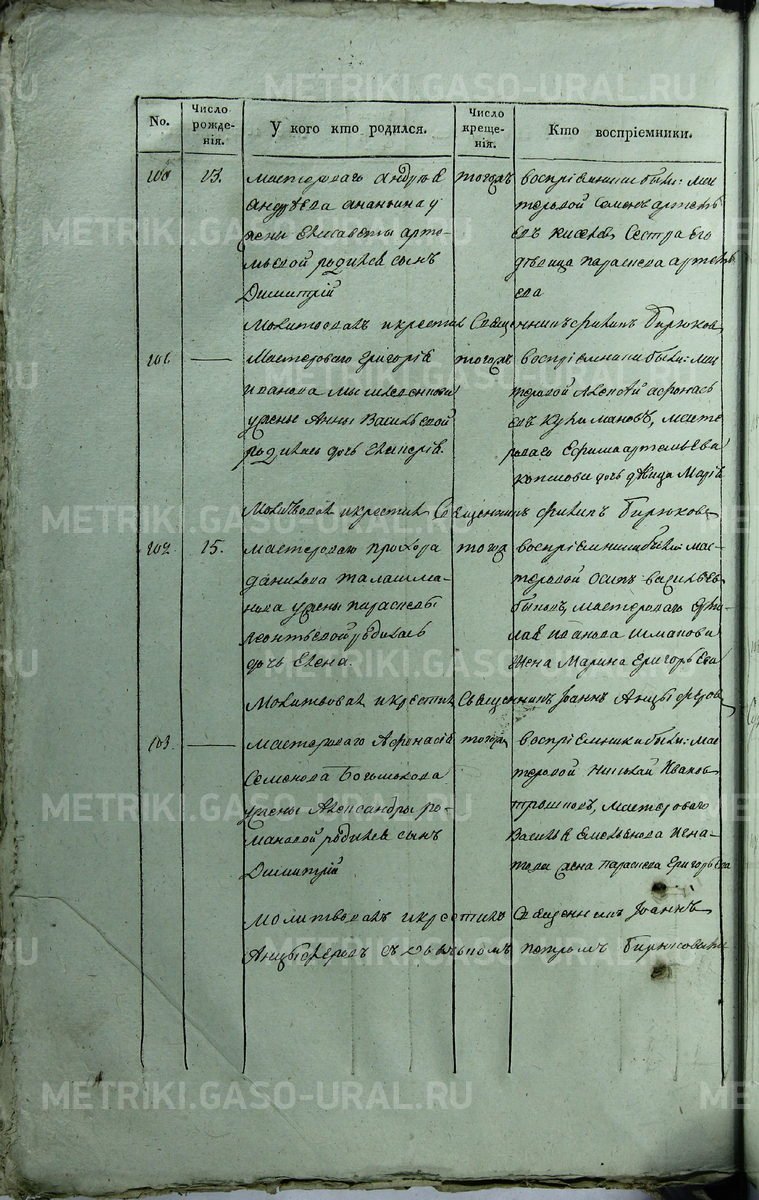 METRIKI.GASO-URAL.RU
No.
Число рожде-нія.
У кого кто родился.
Число креще-нія.
Кто воспріемники.
100
23.
мастероваго Андрея
Андреева Ананьина у
жены Елисаветы Арте-
мьевой родился сынъ
Димитрій
тогожъ
воспріемники были: мас
теровой Семенъ Артемь
евъ Сестра его
девица Параскева Артемь
ева
Молитвовалъ и крестилъ Священникъ Филипъ Бирюковъ
101
—
Мастероваго Григорія
Иванова
у жены Анны Васильевой
родилась дочь
тогожъ
воспріемники были: мас
теровой Алексей Афонась
евъ масте
роваго Ефима Артемьева
дочь девица Марія
Молитвовалъ и крестилъ Священникъ Филипъ Бирюковъ
102.
25.
мастероваго Прохора
Данилова Талашма-
нова у жены Параскевы
Леонтьевой родилась
дочь Елена.
тогож
воспріемники были мас-
теровой Осипъ Васильевъ
Быковъ, мастероваго
Иванова Шмакова
жена Марина Григорьева
Молитвовалъ и крестилъ Священникъ Іоаннъ Анцыферовъ
103.
—
мастероваго Афонасія
Семенова Богомолова
у жены Александры Ро-
мановой родился сынъ
Димитрій
тогож
воспріемники были: мас
теровой Николай Ивановъ
Трошковъ, мастероваго
Василья Емельянова
жена Параскева Григорьева
Молитвовалъ и крестилъ Священникъ Іоаннъ
Анцыферовъ съ Петромъ Бирюковымъ